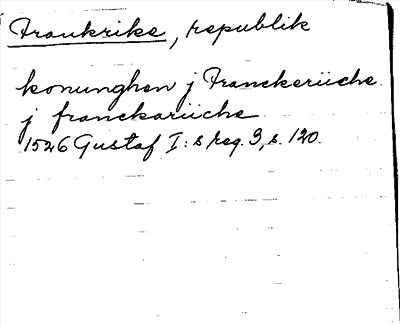 Frankrike, republik
konunghen j Franckerüche
j franckarüche
1526 Gustaf I:s reg. 3, s. 120.